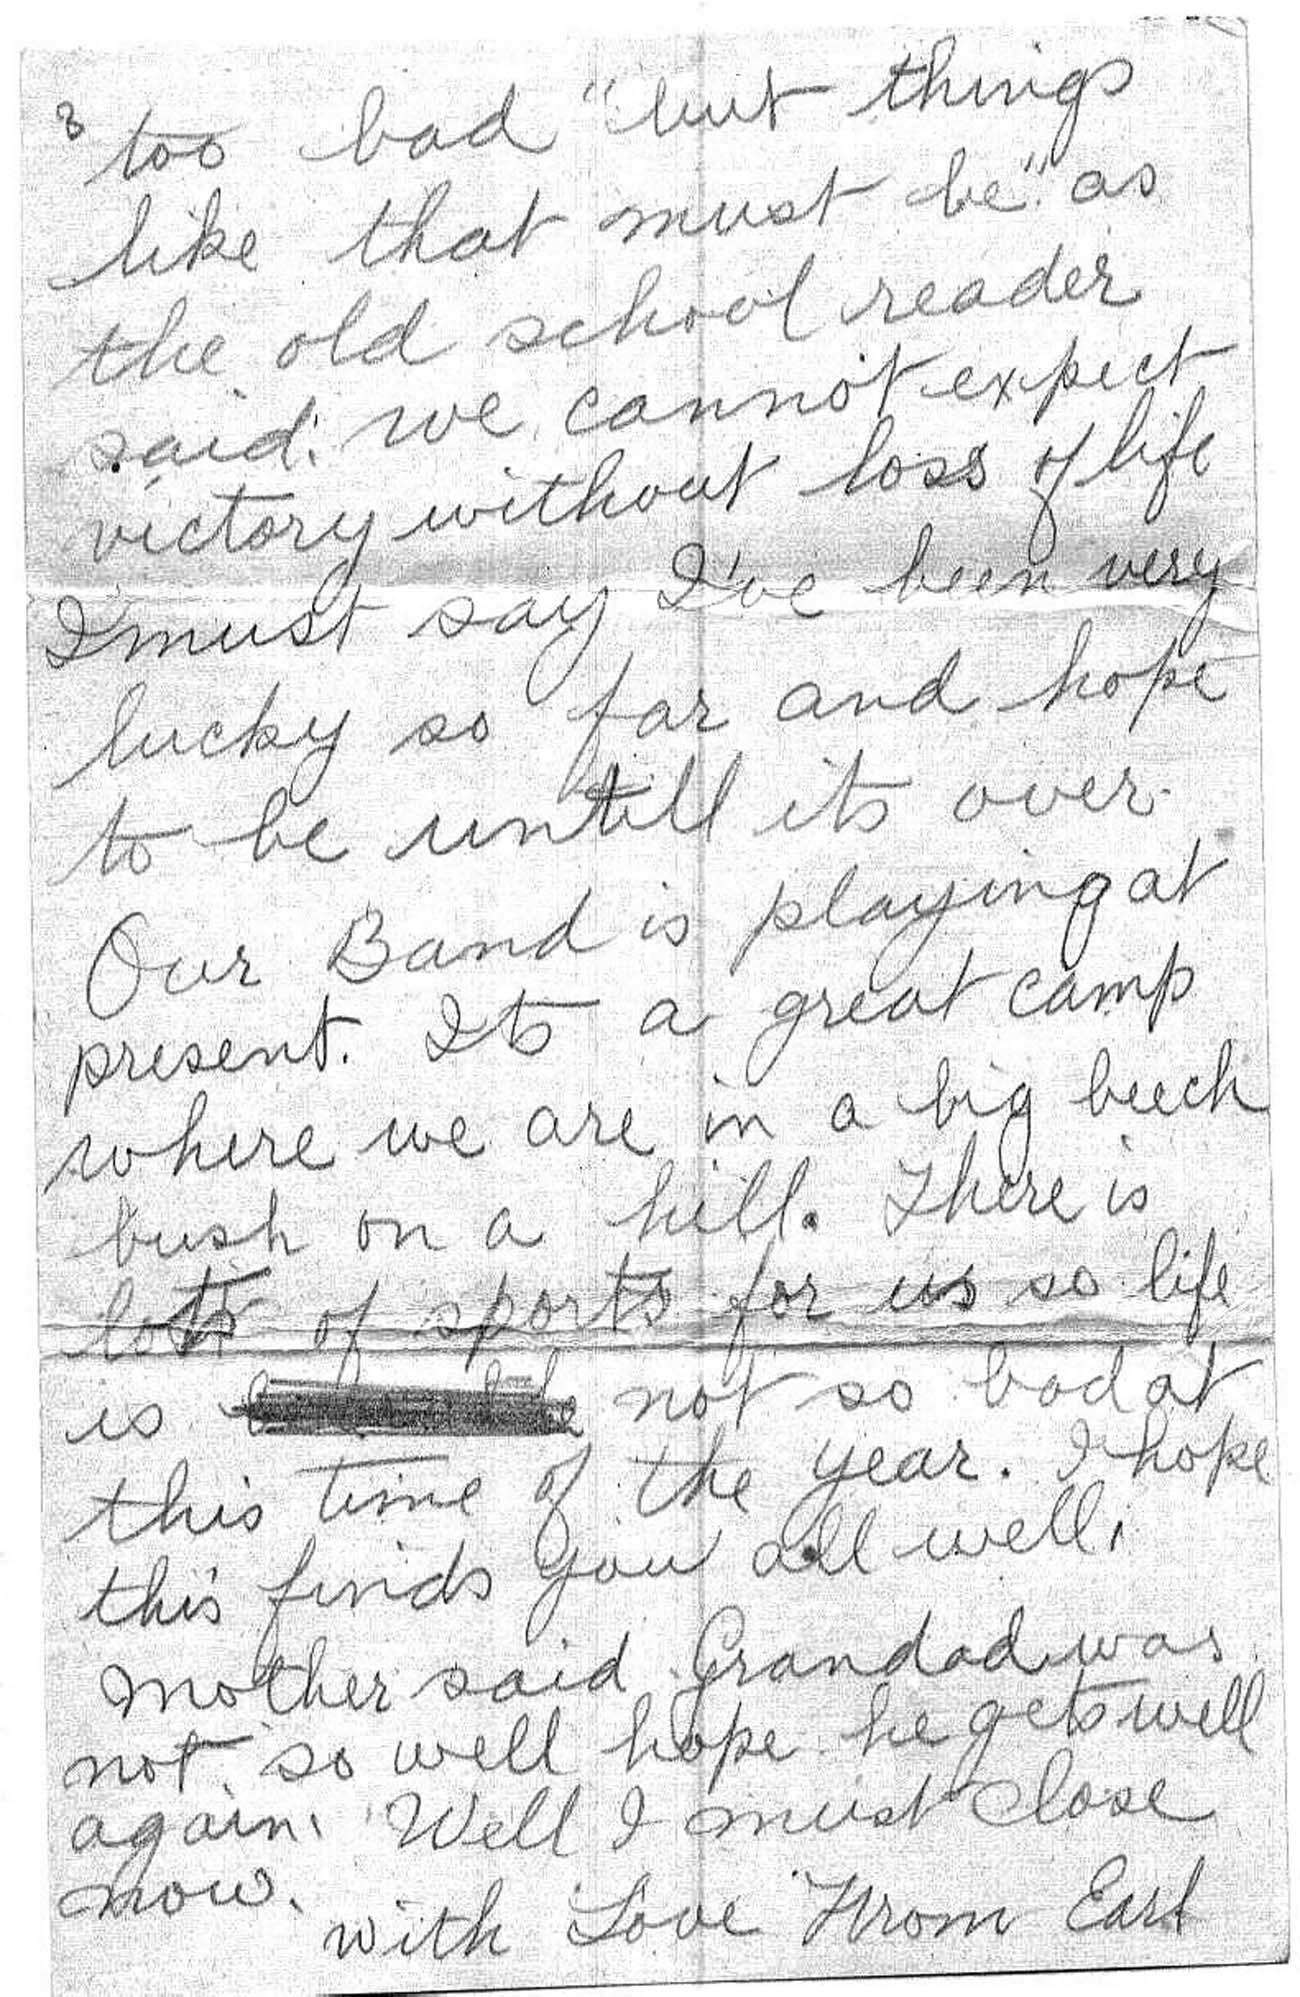 3
too bad "but things
like that must be" as
the old school reader
said. we cannot expect
victory without loss of life
I must say I've been very
lucky so far and hope
to be untill its over.
Our Band is playing at
present. Its a great camp
where we are in a big beech
bush on a hill. There is
lots of sports for us so life
is not so bad at
this time of the year. I hope
this finds you all well.
Mother said Grandad was
not so well hope he gets well
again. Well I must close
now.
with Love From Earl